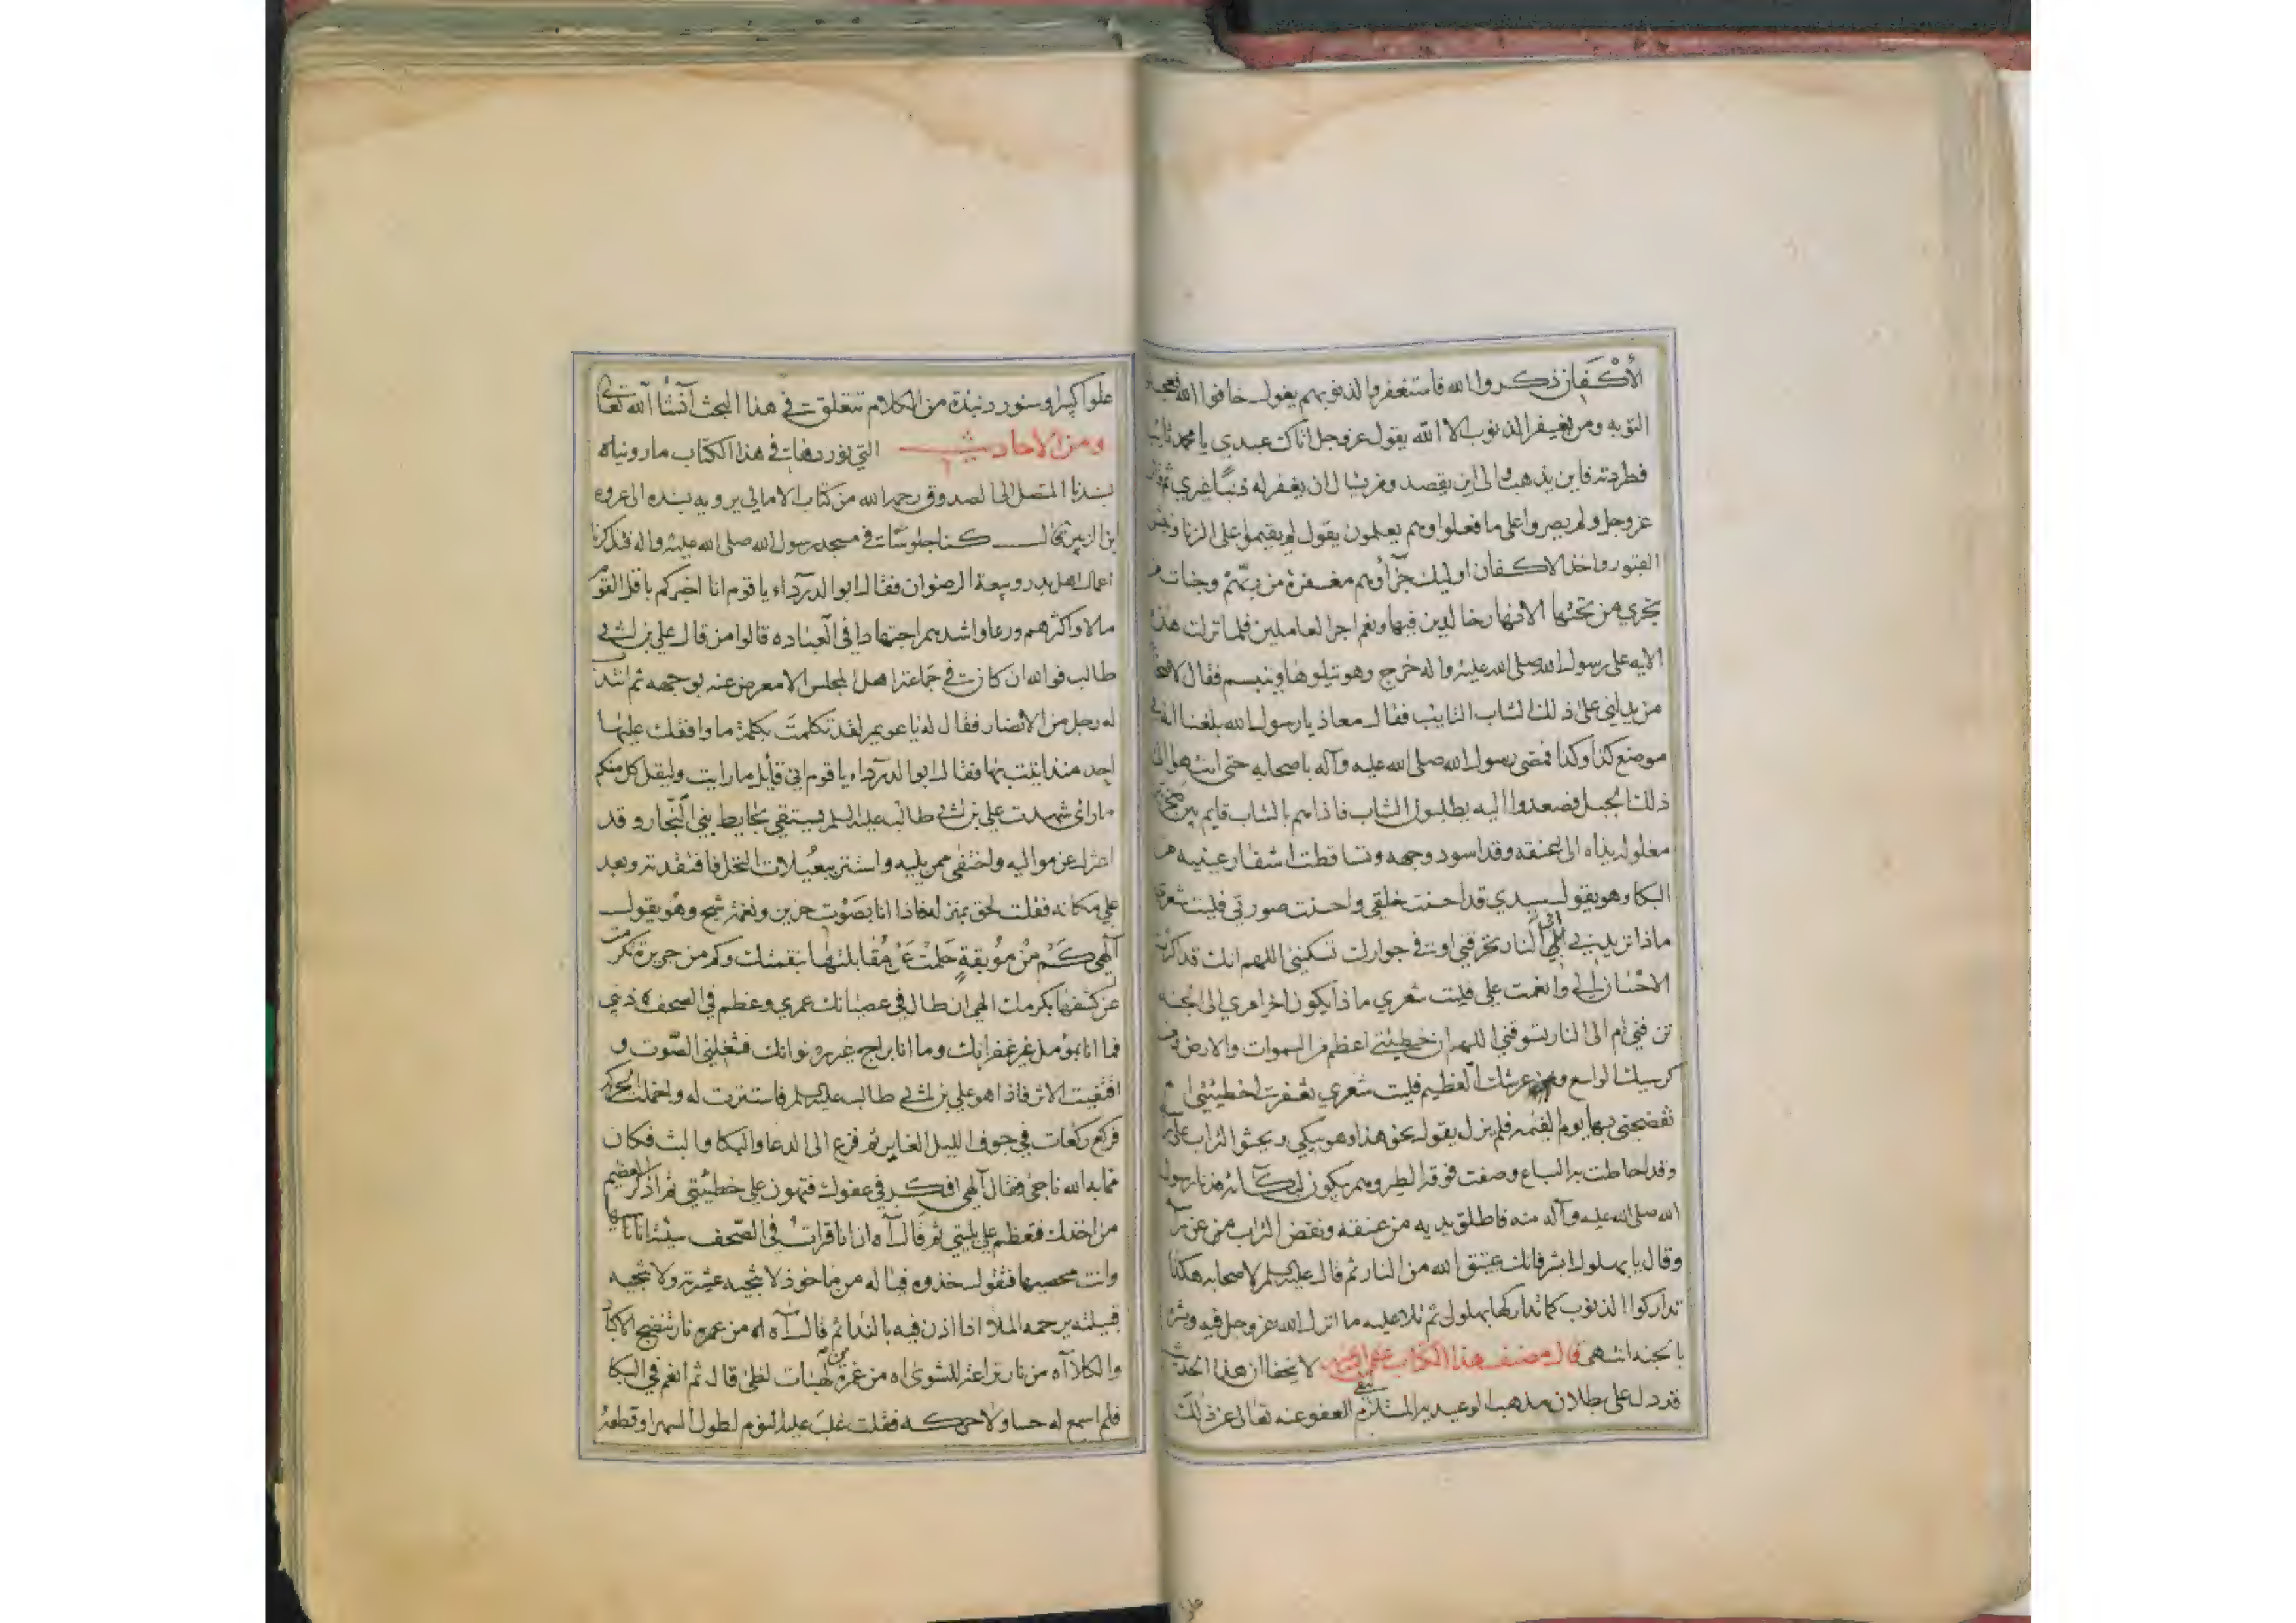 الأكفان ذكروا الله فاستغفروا لذنوبهم يقول خافوا الله فعجلوا
التوبه ومن يغفر الذنوب الا الله يقول عزوجل اتاك عبدي يا محمد تائبا
فطردته فاين يذهب والى اين يقصد ومن يسال ان يغفر له ذنبًا غيري ثم قال
عزوجل ولم يصروا على ما فعلوا وهم يعلمون يقول لم يقيموا على الزنا ونبش
القبور واخذ الاكفان اوليك جزآؤهم مغفرة من ربّهم وجنات
تجري من تحتها الانهار خالدين فيها ونعم اجر العاملين فلما نزلت هذه
الايه على رسول الله صلى الله عليه واله خرج وهو يتلوها ويتبسم فقال لاصحابه
من يدلني على ذلك الشاب التايب فقال معاذ يا رسول الله بلغنا انه في
موضع كذا وكذا فمضى رسول الله صلى الله عليه وآله باصحابه حتى انتهوا الى
ذلك الجبل فصعدوا اليه يطلبون الشاب فاذا هم بالشاب قايم بين صخرتين
مغلوله يداه الى عنقه وقد اسود وجهه وتساقطت اشفار عينيه من
البكا وهو يقول سيدي قد احسنت خلقي واحسنت صورتي فليت شعري
ماذا تريد بي افي النار تحرقني او في جوارك تسكنني اللهم انك قد اكثرت
الاحسان الي وانعمت علي فليت شعري ماذا يكون اخر امري الى الجنه
تزفني ام الى النار تسوقني اللهم ان خطيئتي اعظم من السموات والارض ومن
كرسيك الواسع وعرشك العظيم فليت شعري تغفرت خطيئتي ام
تفضحني بها يوم القيمه فلم يزل يقول نحو هذا وهو يبكي ويحثو التراب على
وقد احاطت به السباع وصفت فوقه الطير وهم يبكون لبكائه فدنا رسول
الله صلى الله عليه وآله منه فاطلق يديه من عنقه ونفض التراب من عن
وقال يا بهلول ابشر فانك عتيق الله من النار ثم قال عليه السلم لاصحابه هكذا
تداركوا الذنوب كما تداركها بهلول ثم تلا عليه ما انزل الله عزوجل فيه وبشره
بالجنه انتهى قال مصنف هذا الكتاب عفى الله عنه لا يخفا ان هذا الحديث
قد دل على بطلان مذهب الوعيديه المستلزم لنفي العفو عنه تعالى عن ذلك
علوا كبيرا وسنورد نبذة من الكلام تتعلق في هذا البحث انشآ الله تعالى
ومن الاحاديث التي نوردها في هذا الكتاب ما رويناه
بسندنا المتصل الى الصدوق رحمه الله من كتاب الامالي يرويه بسنده الى عروه
ابن الزبير قال كنا جلوسا في مسجد رسول الله صلى الله عليه واله فتذاكرنا
اعمال اهل بدر وبيعة الرضوان فقال ابو الدرداء يا قوم انا اخبركم باقل القوم
مالا واكثرهم ورعا واشدهم اجتهادا في العباده قالوا من قال علي بن ابي
طالب فوالله ان كان في جماعة اهل المجلس الا معرض عنه بوجهه ثم انتدب
له رجل من الانصار فقال له يا عويمر لقد تكلمت بكلمة ما وافقك عليها
احد منذ اتيت بها فقال ابو الدرداء يا قوم اني قايل ما رايت وليقل كل منكم
ما راى شهدت علي بن ابي طالب عليه السلم يستقي بحايط بني النجار وقد
اعتزل عن مواليه واختفى ممن يليه واستتر ببعيلات النخل فافتقدته وبعد
علي مكانه فقلت لحق بمنزله فاذا انا بصوت حزين ونغمة شجي وهو يقول
آلهي كم من موبقة حلمت عن مقابلتها بنقمتك وكم من جريرة تكرمت
عن كشفها بكرمك الهي ان طال في عصيانك عمري وعظم في الصحف ذنبي
فما انا بمؤمل غير غفرانك وما انا براج غير رضوانك فشغلني الصوت و
اقتفيت الاثر فاذا هو علي بن ابي طالب عليه السلم فاستترت له واخملت الحركه
فركع ركعات في جوف الليل الغابر ثم فزع الى الدعا والبكا والبث فكان
مما به الله ناجى فقال آلهي افكر في عفوك فتهون علي خطيئتي ثم اذكر العظيم
من اخذك فتعظم علي بليتي ثم قال آه ان انا قرات في الصحف سيئة انا ناسيها
وانت محصيها فتقول خذوه فيا له من ماخوذ لا تنجيه عشيرته ولا تنجيه
قبيلته يرحمه الملا اذا اذن فيه بالندا ثم قال آه اه من نار تنضج الاكباد
والكلا آه من نار نزاعة للشوى اه من غمرة من لهبات لظى قال ثم انغم في البكا
فلم اسمع له حسا ولا حركه فقلت غلب عليه النوم لطول السهر اوقظه